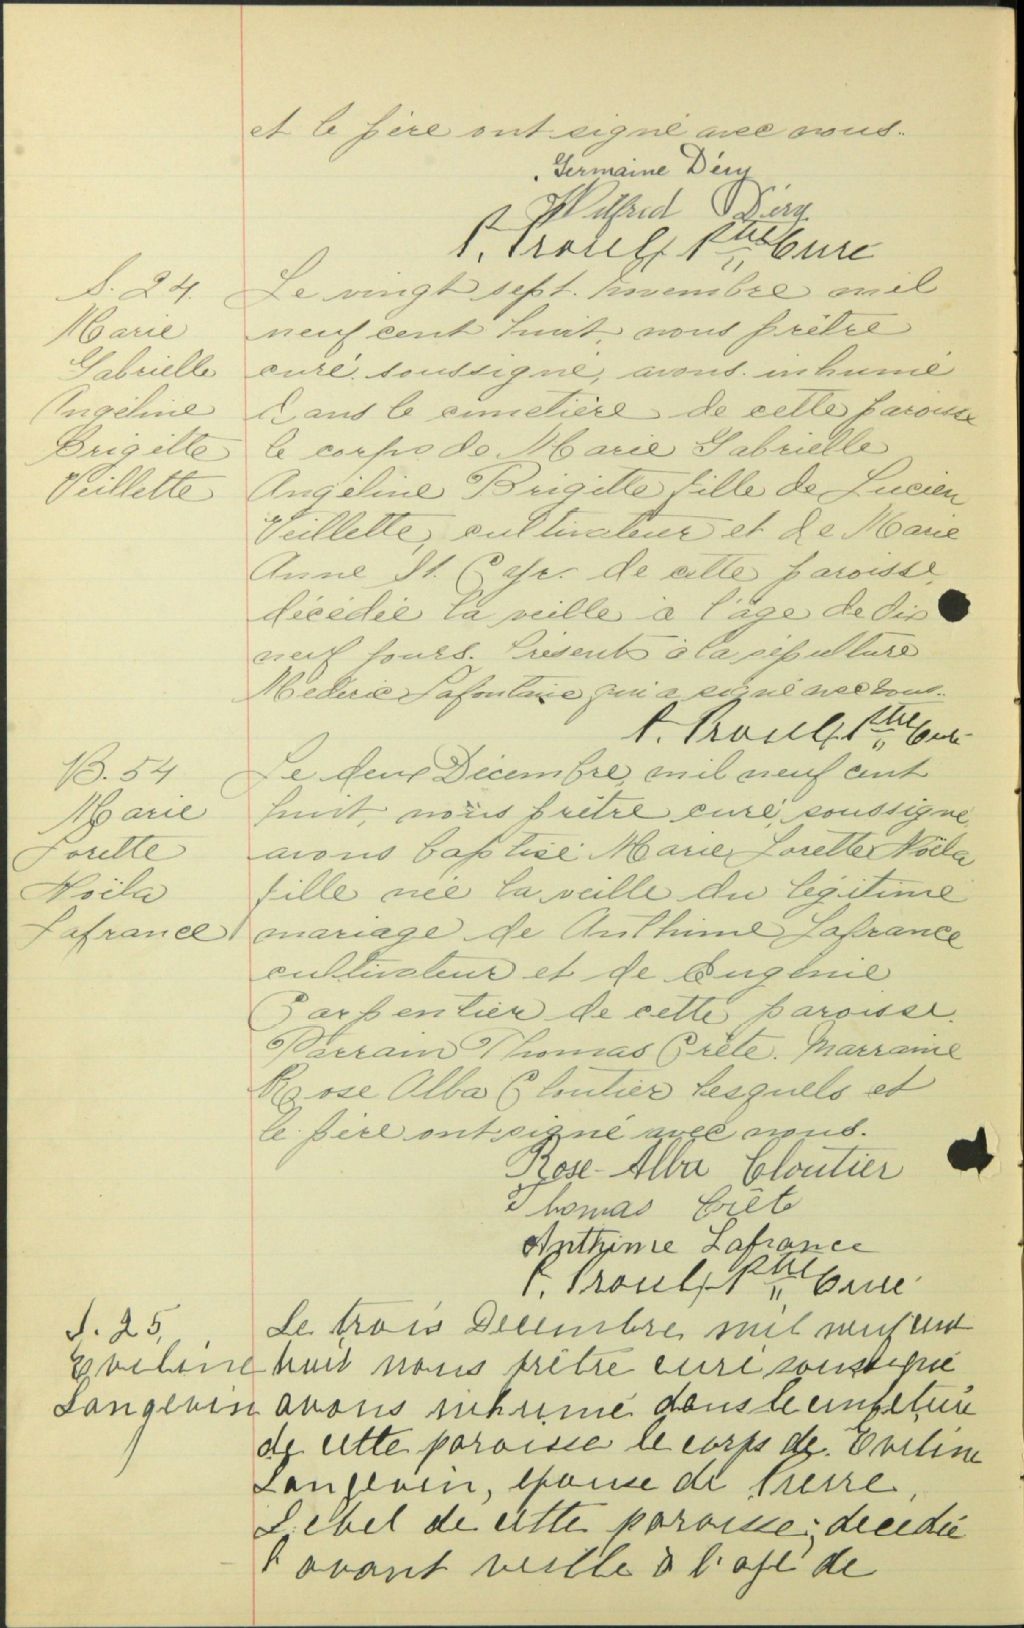 et le père ont signé avec nous.
Germaine Déry
Wilfrid Déry
P. Proulx Ptre Curé
S. 24.
Marie
Gabrielle
Angéline
Brigitte
Veillette
Le vingt sept. novembre mil
neuf cent huit, nous prêtre
curé soussigné, avons inhumé
dans le cimetière de cette paroisse
le corps de Marie Gabrielle
Angéline Brigitte fille de Lucien
Veillette, cultivateur et de Marie
Anne St. de cette paroisse,
décédée la veille à l'âge de dix
neuf jours. Présent à la sépulture
Médéric Lafontaine qui a signé avec nous.
P. Proulx Ptre Curé
B. 54
Marie
Lorette
Noëla
Lafrance
Le deux Décembre mil neuf cent
huit, nous prêtre curé soussigné
avons baptisé Marie Lorette Noëla
fille née la veille du légitime
mariage de Anthime Lafrance
cultivateur et de Eugénie
Carpentier de cette paroisse.
Parrain Thomas Crête. Marraine
Rose Alba Cloutier lesquels et
le père ont signé avec nous.
Rose-Alba Cloutier
Thomas Crête
Anthime Lafrance
P. Proulx Ptre Curé
S. 25,
Eveline
Langevin
Le trois Decembre mil neuf cent
huit nous prêtre curé soussigné
avons inhumé dans le cimetière
de cette paroisse le corps de Eveline
Langevin, épouse de Pierre
Lebel de cette paroisse; decedée
l'avant veille à l'age de